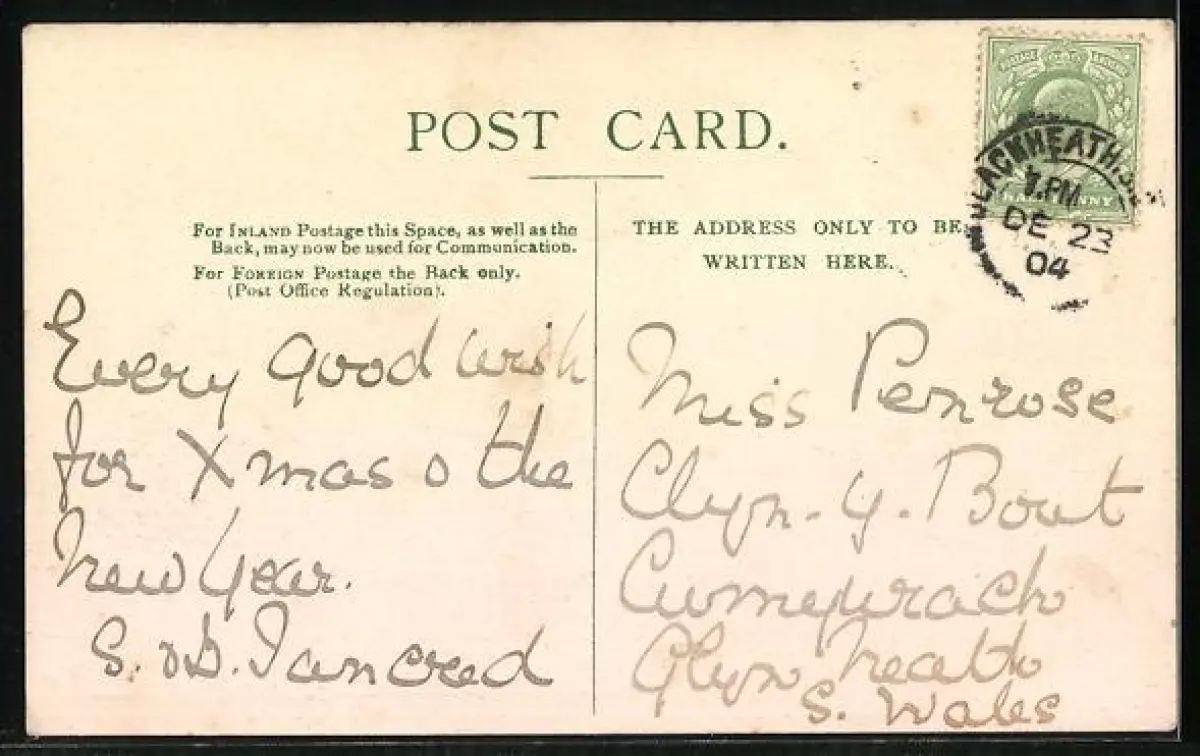 POST CARD.
For INLAND Postage this Space, as well as the
Back, may now be used for Communication.
For FOREIGN Postage the Back only.
(Post Office Regulation).
THE ADDRESS ONLY TO BE
WRITTEN HERE.
HALFPENNY
BLACKHEATH.S.E
PM
DE 23
04
Every good wish
for Xmas & the
New Year.
S. & D. Tancred
Miss Penrose
Clyn. y. Bout
Glyn Neath
S. Wales